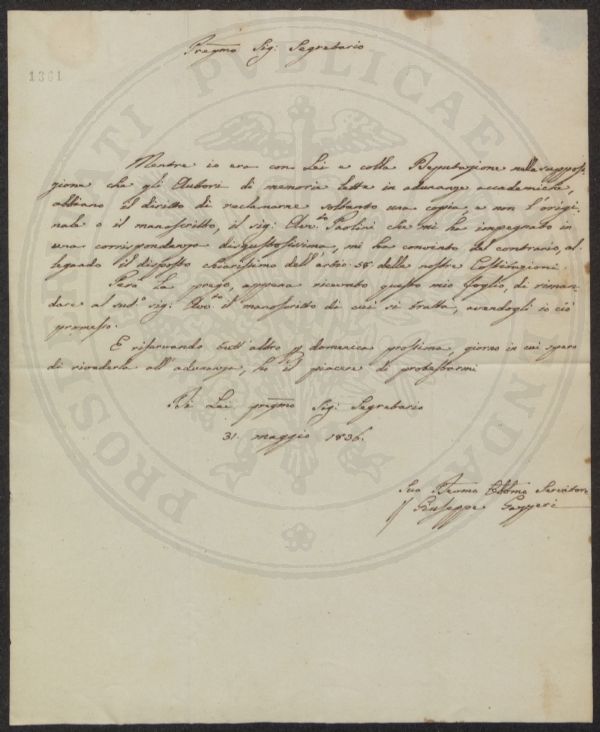 Pregmo Sig: Segretario
1361
Mentre io era con Lei e colla Deputazione nella suppos-
izione che gli Autori di memorie lette in adunanze accademiche,
abbiano il diritto di reclamarne soltanto una copia, e non l'origi-
nale o il manoscritto, il sig: Avv.to Paolini che mi ha impegnato in
una corrispondenza disgustosissima, mi ha convinto del contrario, al-
legando il disposto chiarissimo dell'artic: 58 della nostre Costituzioni.
Però La prego, appena ricevuto questo mio foglio, di riman-
dare al sud.o sig: Avv.to il manoscritto di cui si tratta, avendogli io ciò
promesso.
E riservando tutt'altro p domenica prossima, giorno in cui spero
di rivederla all'adunanza, ho il piacere di protestarmi
Di Lei pregmo Sig: Segretario
31. maggio 1836.
Suo Devmo Obbmo Servitore
Giuseppe Gazzeri
PROSPERITATI PVBLICAE AVGENDAE